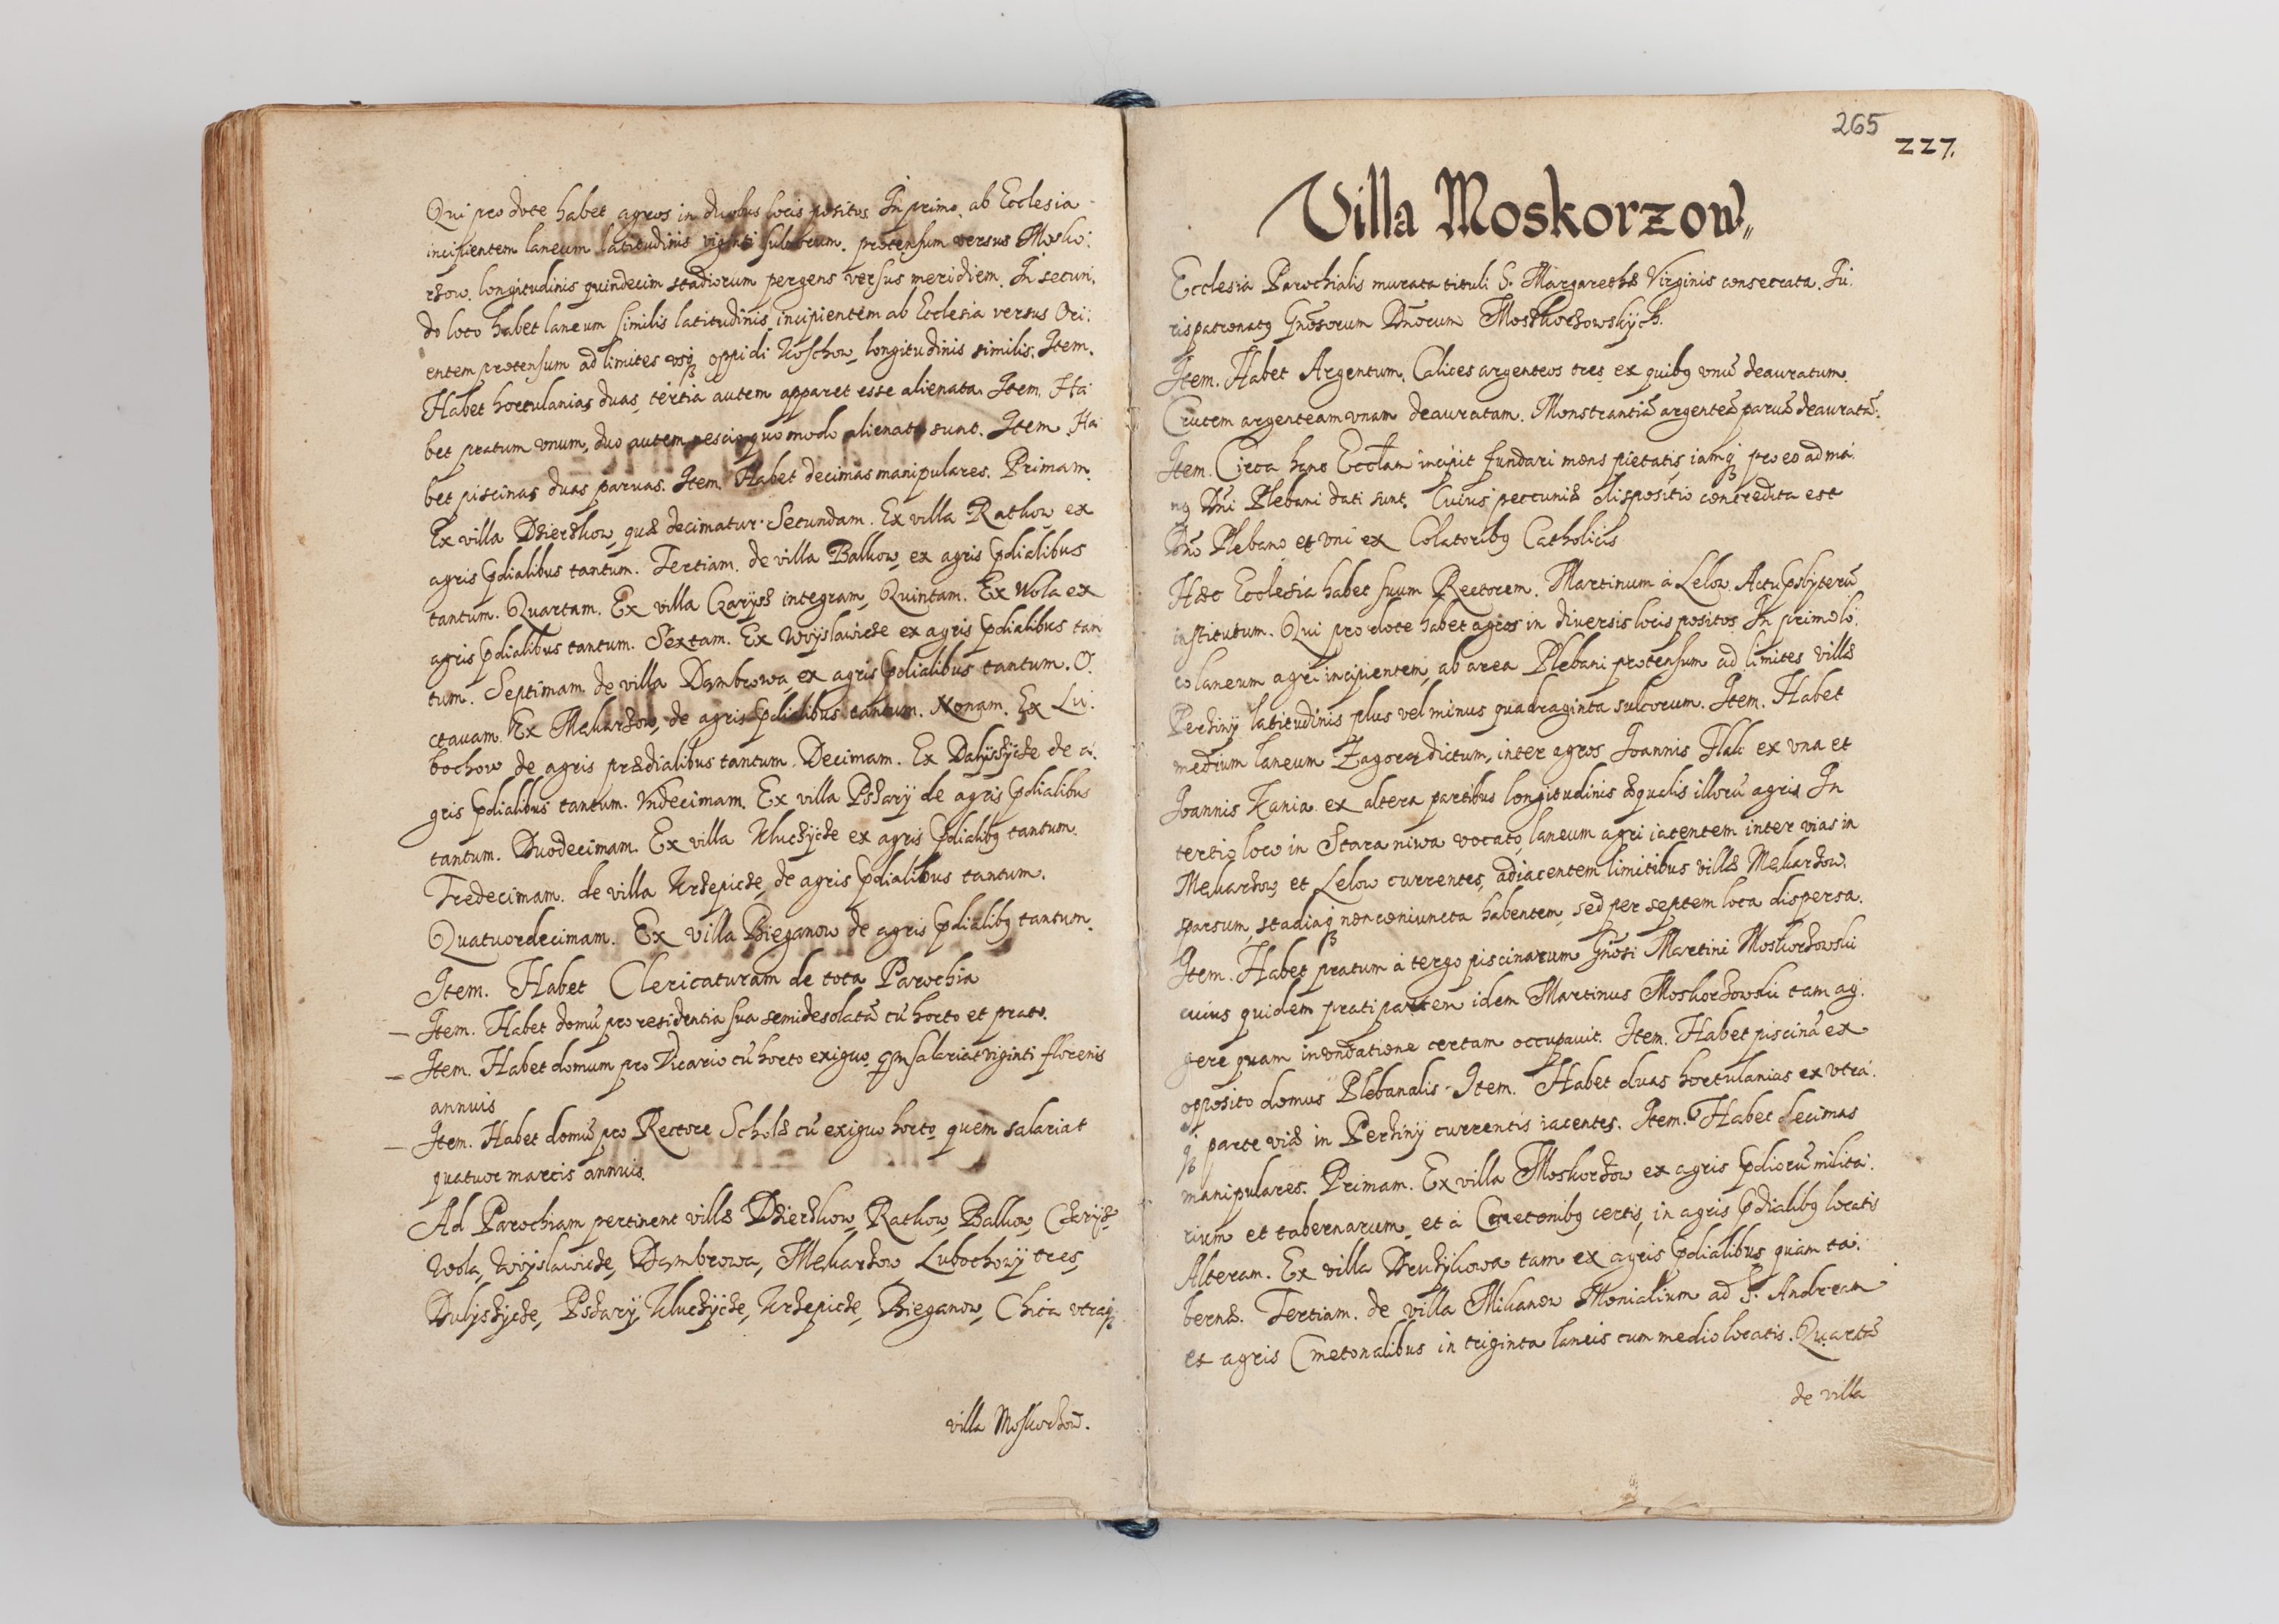 Qui pro dote habet agros in duobus locis positos In primo, ab Ecclesia
incipientem laneum latitudinis viginti sulcorum. protensum versus Mosko:
rzow. longitudinis quindecim stadiorum pergens versus meridiem. In secun:
do loco habet laneum similis latitudinis, incipientem ab Ecclesia versus Ori:
entem protensum ad limites usq oppidi Koschow, longitudinis similis. Item.
Habet hortulanias duas, tertia autem apparet esse alienata. Item. Ha:
bet pratum vnum, duo autem nescio quomodo alienata sunt. Item Ha:
bet piscinas duas paruas. Item. Habet decimas manipulares. Primam.
Ex villa Dzierzkow, quæ decimatur. Secundam. Ex villa Rathow ex
agris pdialibus tantum. Tertiam. de villa Balkow, ex agris pdialibus
tantum. Quartam. Ex villa Czarysz integram, Quintam. Ex Wola ex
agris pdialibus tantum. Sextam. Ex Woyslawicze ex agris pdialibus tan
tum. Septimam de villa Dambrowa, ex agris pdialibus tantum. O:
ctauam. Ex Mekarzow, de agris pdialibus tantum. Nonam. Ex Lu:
bochow de agris prædialibus tantum. Decimam. Ex Daliszycze de a:
gris pdialibus tantum. Vndecimam. Ex villa Pszary de agris pdialibus
tantum. Duodecimam. Ex villa Kluczycze ex agris pdialibq tantum.
Tredecimam. de villa Krzepicze, de agris pdialibus tantum.
Quatuordecimam. Ex villa Bieganow de agris pdialibq tantum.
Item. Habet Clericaturam de tota Parochia
– Item. Habet domū pro residentia sua semidesolatā cū horto et prato.
– Item. Habet domum pro Vicario cū horto exiguo, qm salariat viginti florenis
annuis
– Item. Habet domū pro Rectore Scholæ cū exiguo horto, quem salariat
quatuor marcis annuis.
Ad Parochiam pertinent villæ Dzierzkow, Rathow, Balkow, Czarysz
Wola, Woyslawicze, Dambrowa, Mekarzow Lubochowy tres,
Dulyszycze, Pszary, Kluczycze, Krzepicze, Bieganow, Chica vtraq
villa Moskorzow.
265
227.
Villa Moskorzow,,
Ecclesia Parochialis murata tituli S. Margarethæ Virginis consecrata. Iu:
ris patronatq Gnosorum Dnorum Moskorzowskych.
Item. Habet Argentum. Calices argenteos tres, ex quibq vnū deauratum.
Crucem argenteam vnam deauratam. Monstrantiā argenteā paruā deauratā.
Item. Circa hanc Ecclam incipit fundari mons pietatis, iamq pro eo ad ma:
nq Dni Plebani dati sunt. Cuius pecuniæ dispositio concredita est
Dno Plebano, et vni ex Colatoribq Catholicis
Hæc Ecclesia habet suum Rectorem. Martinum à Lelow Actu psbyterū
institutum. Qui pro dote habet agros in diversis locis positos. In primo lo:
co laneum agri incipientem, ab area Plebani protensum ad limites villæ
Perziny latitudinis plus vel minus quadraginta sulcorum. Item. Habet
medium laneum Zagorze dictum, inter agros Ioannis Flak ex vna et
Ioannis Kania ex altera partibus longitudinis æqualis illorū agris. In
tertio loco in Stara niwa vocato, laneum agri iacentem inter vias in
Mekarzow, et Lelow currentes, adiacentem limitibus villæ Mekarzow,
sparsum, stadiaq non coniuncta habentem, sed per septem loca dispersa.
Item. Habet pratum à tergo piscinarum Gnosi Martini Moskorzowski
cuius quidem prati partem idem Martinus Moskorzowski tam ag:
gere quam inondatione certam occupauit. Item. Habet piscinā ex
opposito domus Plebanalis. Item. Habet duas hortulanias ex vtra:
q parte viæ in Perziny currentis iacentes. Item. Habet decimas
manipulares. Primam. Ex villa Moskorzow ex agris pdiorū milita:
rium et tabernarum, et à Cmetonibq certis, in agris pdialibq locatis
Alteram. Ex villa Druzykowa tam ex agris pdialibus quam ta:
bernæ. Tertiam. de villa Mikanow Monialium ad S. Andream
ex agris Cmetonalibus in triginta laneis cum medio locatis. Quartā
de villa